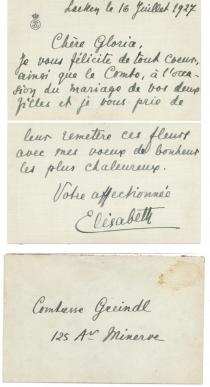 Laeken le 16 Juillet 1927
Chère Gloria,
Je vous félicite de tout coeur,
ainsi que le Comte, à l'occa-
sion du mariage de vos deux
filles et je vous prie de
leur remettre ces fleurs
avec mes voeux de bonheur
les plus chaleureux.
Votre affectionnée
Elisabeth
Comtesse Greindl
125 Av. Minerve